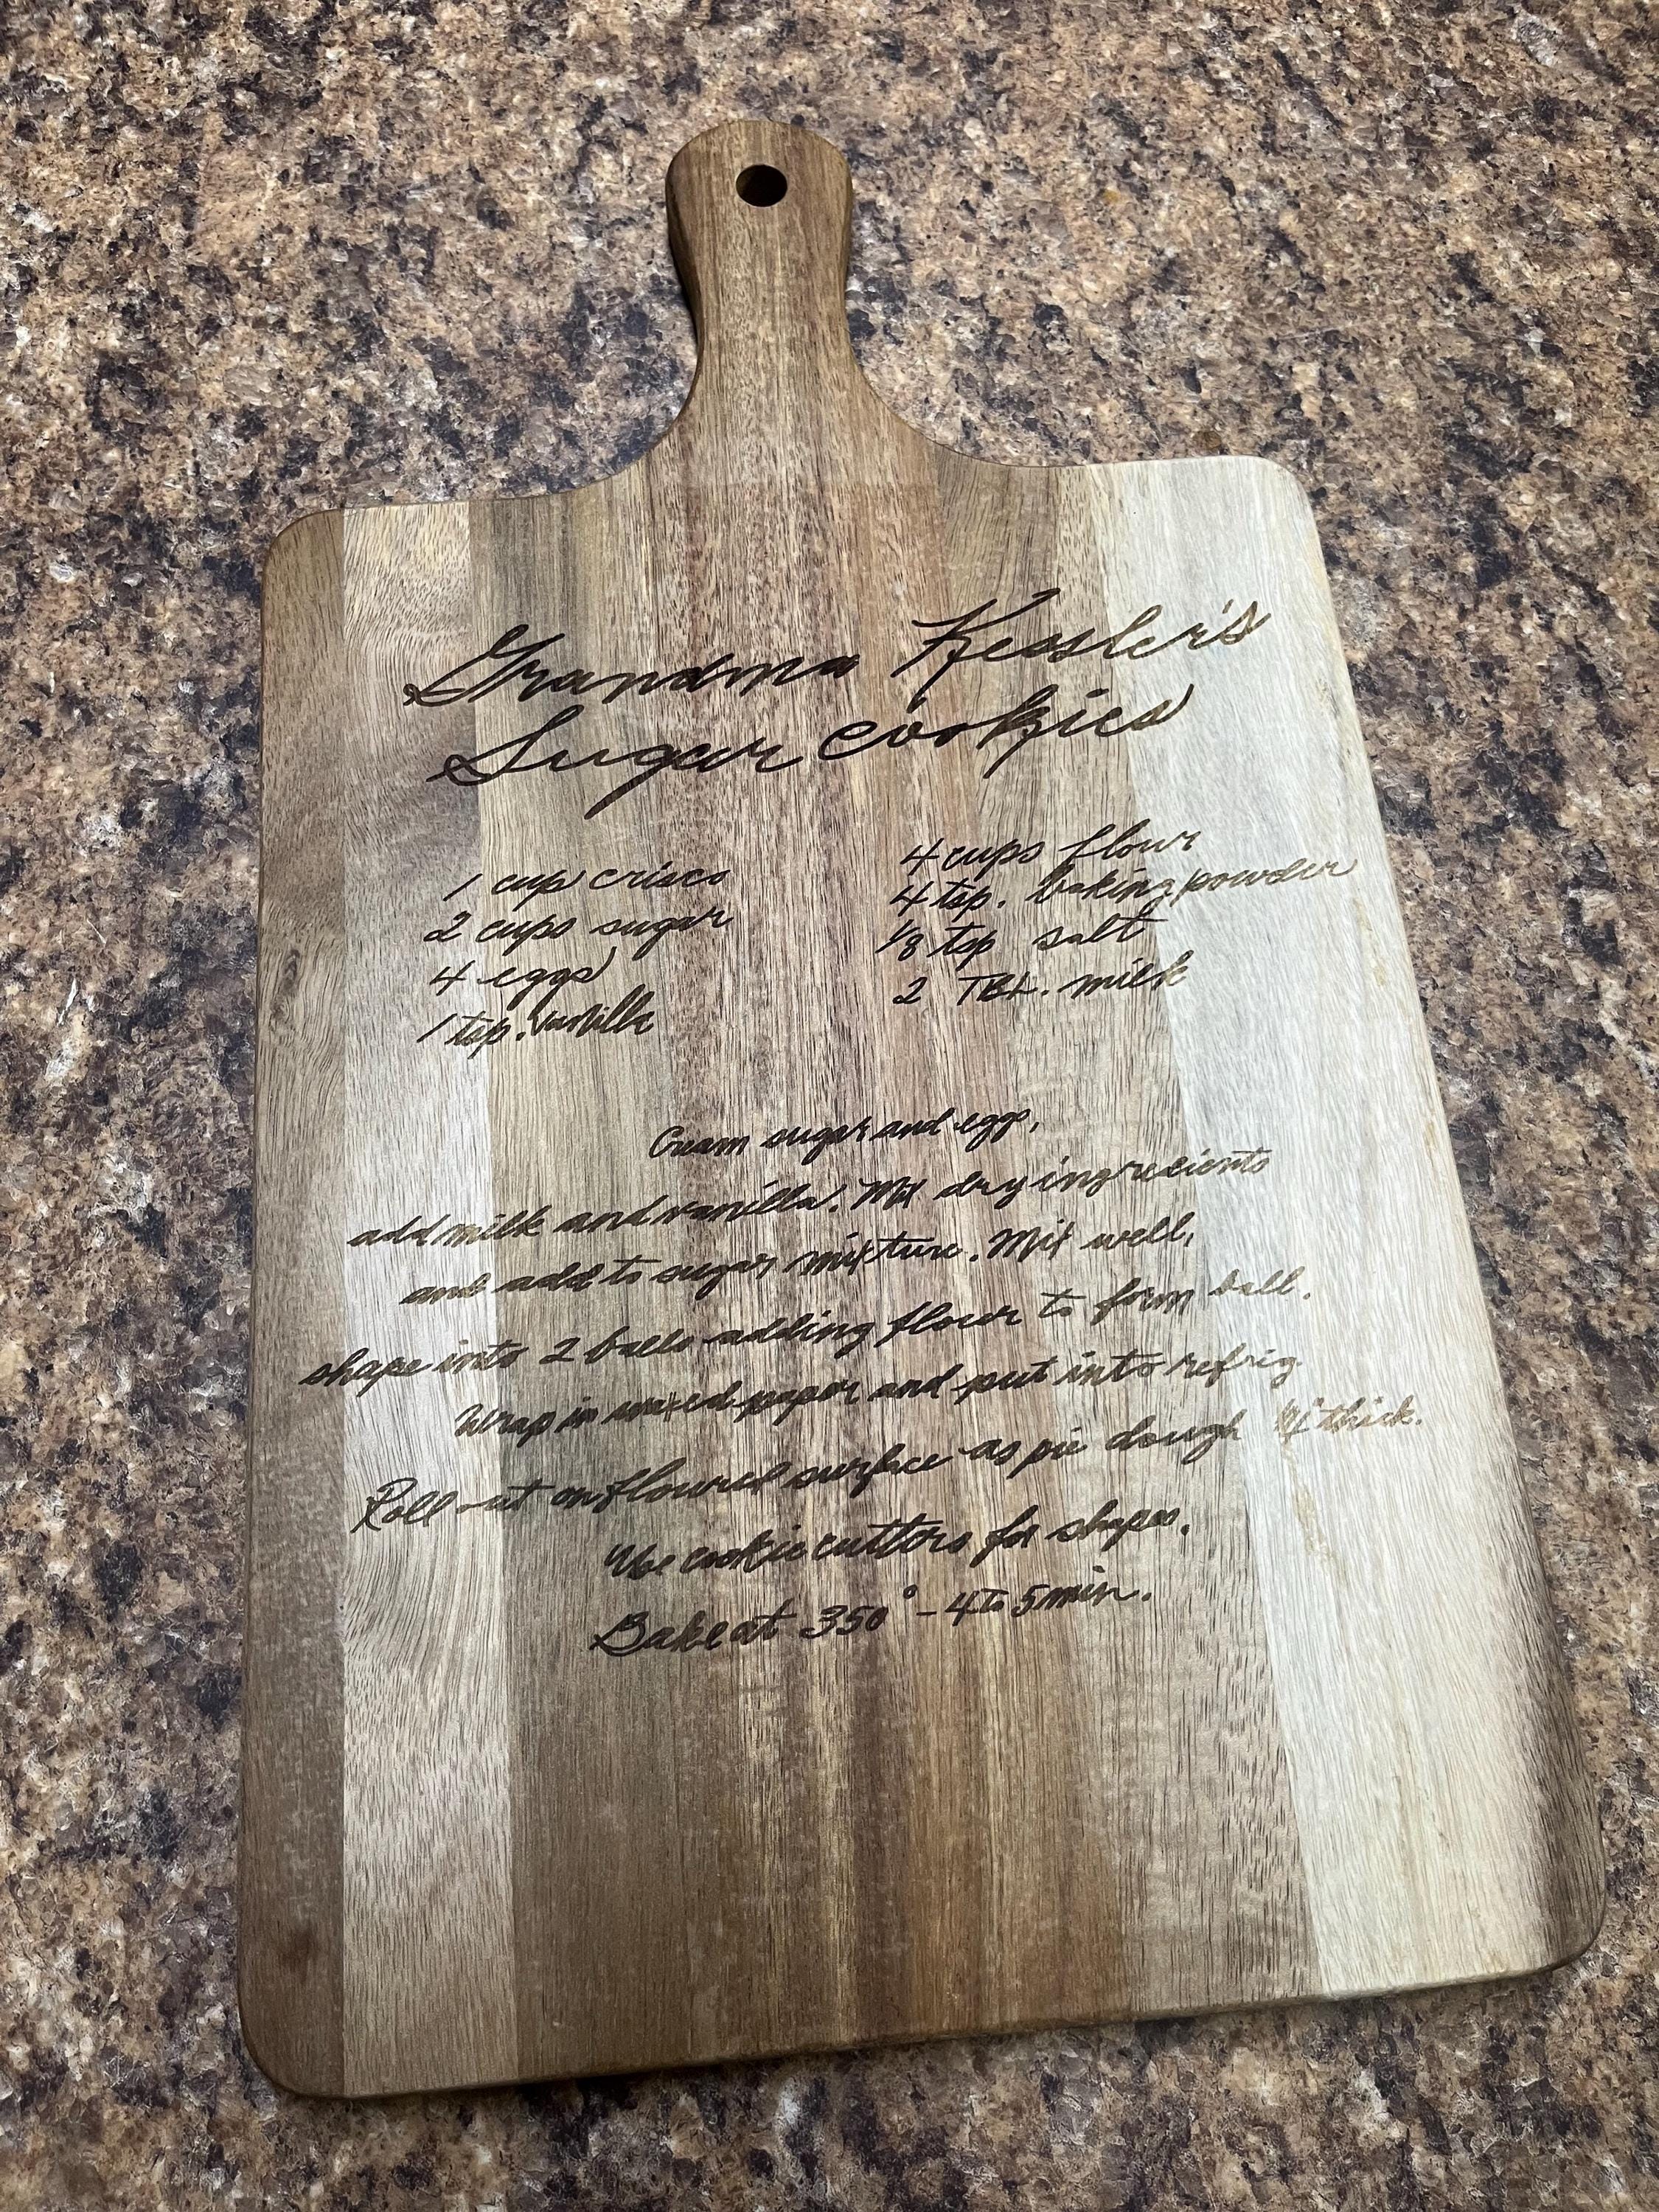 Grandma Kessler's
Sugar cookies
1 cup crisco
2 cups sugar
4 eggs
1 tsp. vanilla
4 cups flour
4 tsp. baking powder
1/8 tsp salt
2 TBL. milk
Cream sugar and eggs,
add milk and vanilla. Mix dry ingredients
and add to sugar mixture. Mix well,
shape into 2 balls adding flour to form ball.
Wrap in waxed paper and put into refrig
Roll out on floured surface as pie dough thick.
Use cookie cutters for shapes.
Bake at 350° - 4 to 5 min.